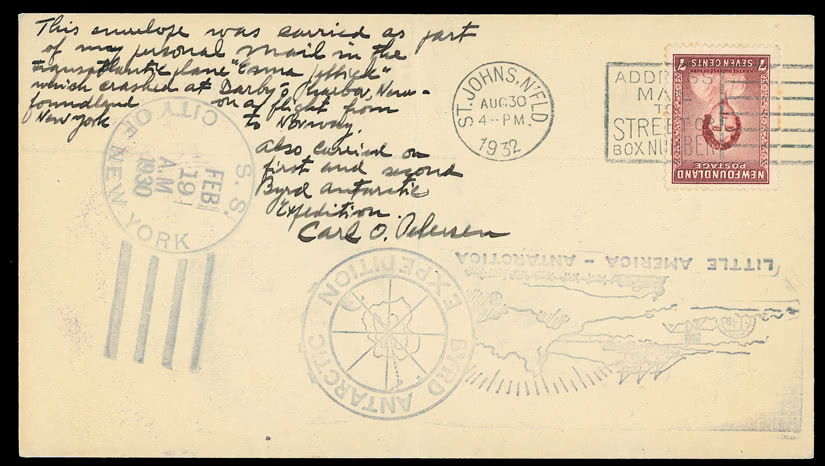 This envelope was carried as part
of my personal mail in the
transatlantic plane "Enna Jettick"
which crashed at Darby's Harbor, New-
foundland on a flight from
New York to Norway.
Also carried on
first and second
Byrd Antarctic
Expedition.
Carl O. Petersen
ST. JOHN'S, N'FL'D.
AUG 30
4-PM.
1932
ADDRESS
MAIL
TO
STREET OR
BOX NUMBER
SEVEN CENTS
7 7
NEWFOUNDLAND
POSTAGE
S.S. CITY OF NEW YORK
FEB
19
A.M
1930
BYRD ANTARCTIC EXPEDITION
LITTLE AMERICA - ANTARCTICA